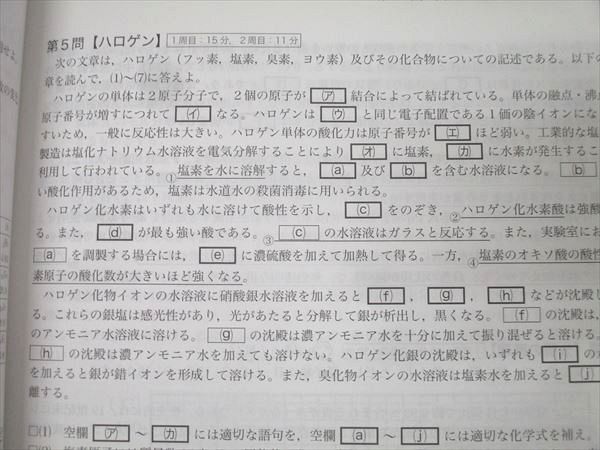 第5問【ハロゲン】 1周目:15分, 2周目:11分
次の文章は,ハロゲン(フッ素,塩素,臭素,ヨウ素)及びその化合物についての記述である。以下の
章を読んで,(1)~(7)に答えよ。
ハロゲンの単体は2原子分子で,2個の原子が (ア) 結合によって結ばれている。単体の融点・沸
原子番号が増すにつれて (イ) なる。ハロゲンは (ウ) と同じ電子配置である1価の陰イオンにな
すいため,一般に反応性は大きい。ハロゲン単体の酸化力は原子番号が (エ) ほど弱い。工業的な塩
製造は塩化ナトリウム水溶液を電気分解することにより (オ) に塩素, (カ) に水素が発生するこ
利用して行われている。①塩素を水に溶解すると, (a) 及び (b) を含む水溶液になる。 (b)
い酸化作用があるため,塩素は水道水の殺菌消毒に用いられる。
ハロゲン化水素はいずれも水に溶けて酸性を示し, (c) をのぞき,②ハロゲン化水素酸は強酸
る。また, (d) が最も強い酸である。③ (c) の水溶液はガラスと反応する。また,実験室にお
(a) を調製する場合には, (e) に濃硫酸を加えて加熱して得る。一方,④塩素のオキソ酸の酸性
素原子の酸化数が大きいほど強くなる。
ハロゲン化物イオンの水溶液に硝酸銀水溶液を加えると (f) , (g) , (h) などが沈殿し
る。これらの銀塩は感光性があり,光があたると分解して銀が析出し,黒くなる。 (f) の沈殿は,
のアンモニア水溶液に溶ける。 (g) の沈殿は濃アンモニア水を十分に加えて振り混ぜると溶ける。
(h) の沈殿は濃アンモニア水を加えても溶けない。ハロゲン化銀の沈殿は,いずれも (i) の
を加えると銀が錯イオンを形成して溶ける。また,臭化物イオンの水溶液は塩素水を加えると (j)
離する。
□(1) 空欄 (ア) ~ (カ) には適切な語句を,空欄 (a) ~ (j) には適切な化学式を補え。